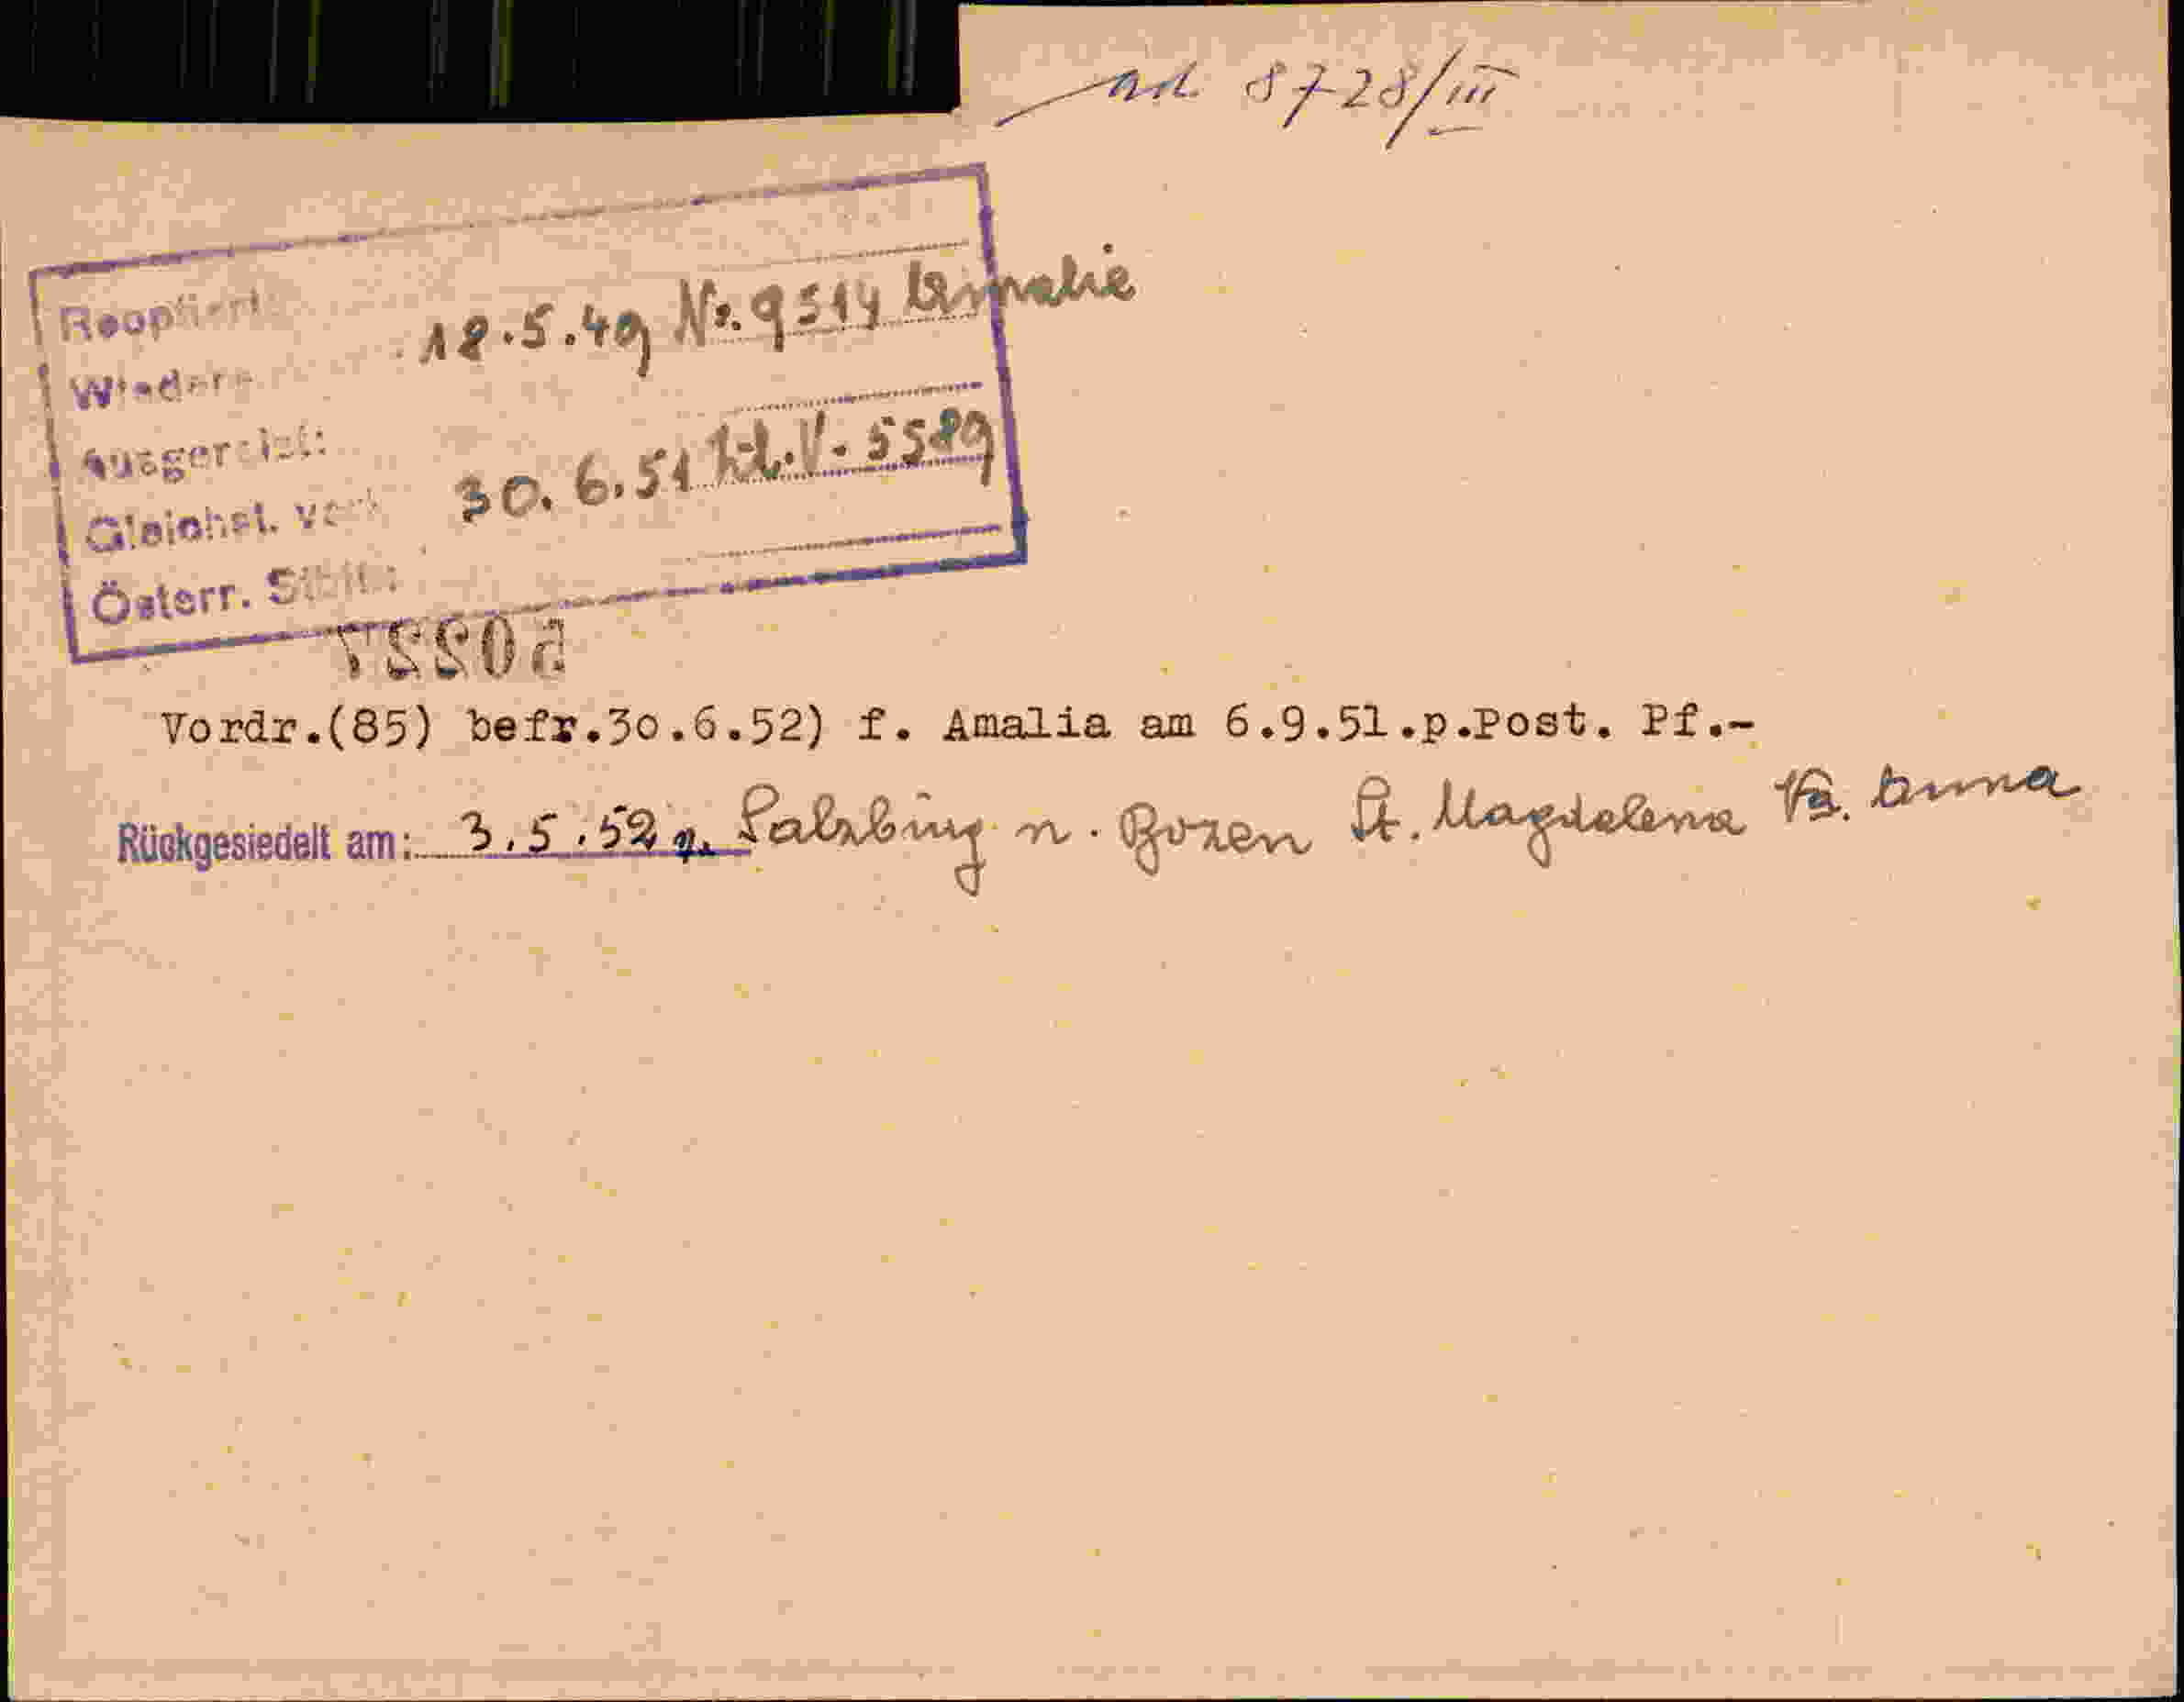 ad 8728/III
Reoptiert:
18.5.49 Nr. 9514 Amalie
Wieder
Ausgereist:
Gleichst. verl. 30.6.51 V. 5589
Österr. Stb
50227
Vordr.(85) befr.30.6.52) f. Amalia am 6.9.51.p.Post. Pf.-
Rückgesiedelt am: 3.5.52 n. Salzburg n. Bozen St. Magdalena Anna